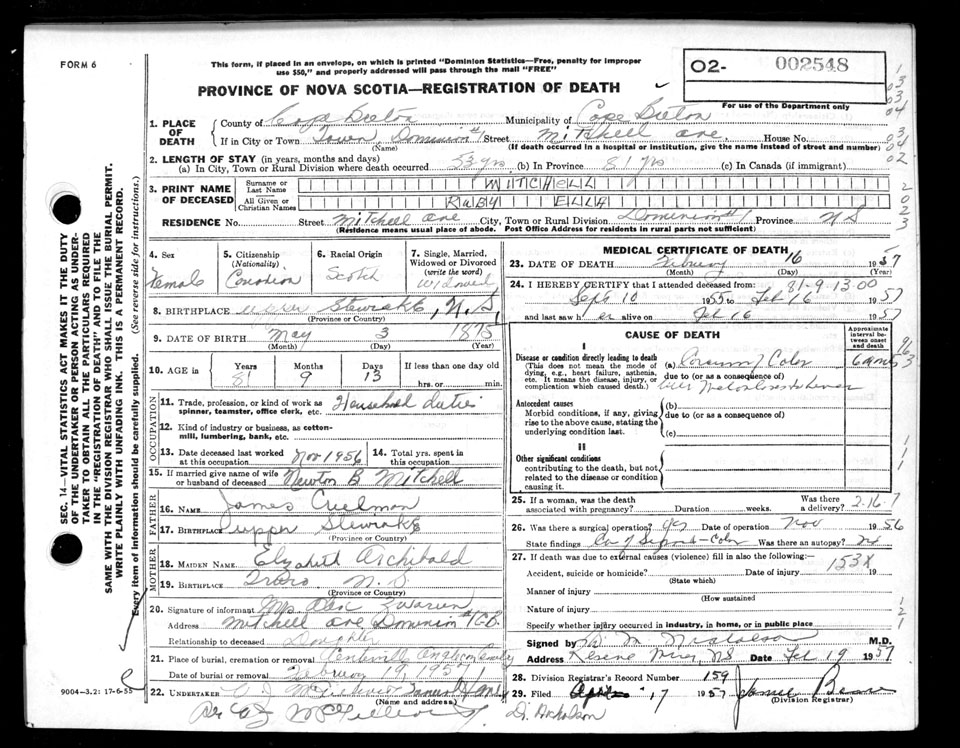 FORM 6
This form, if placed in an envelope, on which is printed "Dominion Statistics—Free, penalty for improper
use $50," and properly addressed will pass through the mail "FREE"
O2- 002548
For use of the Department only
PROVINCE OF NOVA SCOTIA—REGISTRATION OF DEATH
1. PLACE OF DEATH
County of Cape Breton Municipality of Cape Breton
If in City or Town Town Dominion #1 Street Mitchell ave House No.
(Name) (If death occurred in a hospital or institution, give the name instead of street and number)
2. LENGTH OF STAY (in years, months and days)
(a) In City, Town or Rural Division where death occurred 53 yrs (b) In Province 81 yrs (c) In Canada (if immigrant)
3. PRINT NAME OF DECEASED
Surname or Last Name MITCHELL
All Given or Christian Names ELLA
RESIDENCE No. Street Mitchell ave City, Town or Rural Division Dominion #1 Province N S
(Residence means usual place of abode. Post Office Address for residents in rural parts not sufficient)
4. Sex Female
5. Citizenship (Nationality) Canadian
6. Racial Origin Scotch
7. Single, Married, Widowed or Divorced (write the word) Widowed
8. BIRTHPLACE Stewiake, N.S,
(Province or Country)
9. DATE OF BIRTH May 3 1875
(Month) (Day) (Year)
10. AGE in Years Months Days If less than one day old
81 9 13 hrs. or min.
OCCUPATION
11. Trade, profession, or kind of work as spinner, teamster, office clerk, etc. Household duties
12. Kind of industry or business, as cotton-mill, lumbering, bank, etc.
13. Date deceased last worked at this occupation Nov 1956
14. Total yrs. spent in this occupation
15. If married give name of wife or husband of deceased Newton B Mitchell
FATHER
16. NAME James
17. BIRTHPLACE upper Stewiake
(Province or Country)
MOTHER
18. MAIDEN NAME Elizabeth Archibald
19. BIRTHPLACE Truro N.S.
(Province or Country)
20. Signature of informant Mrs
Address Mitchell ave Dominion #1 C.B.
Relationship to deceased Daughter
21. Place of burial, cremation or removal
Date of burial or removal February 19, 1957
22. UNDERTAKER
(Name and address)
MEDICAL CERTIFICATE OF DEATH
23. DATE OF DEATH February 16 1957
(Month) (Day) (Year)
81-9-13-00
24. I HEREBY CERTIFY that I attended deceased from:
Sept 10 1955 to Feb 16 1957
and last saw h er alive on Feb 16 1957
CAUSE OF DEATH
Approximate interval between onset and death
I
Disease or condition directly leading to death (a)
(This does not mean the mode of dying, e.g., heart failure, asthenia, etc. It means the disease, injury, or complication which caused death.)
due to (or as a consequence of)
Antecedent causes
Morbid conditions, if any, giving rise to the above cause, stating the underlying condition last.
(b)
due to (or as a consequence of)
(c)
II
Other significant conditions
contributing to the death, but not related to the disease or condition causing it.
25. If a woman, was the death associated with pregnancy? Duration weeks. Was there a delivery? 2-16-7
26. Was there a surgical operation? yes Date of operation Nov 1956
State findings Was there an autopsy? No
27. If death was due to external causes (violence) fill in also the following:—
Accident, suicide or homicide? Date of injury 19
(State which)
Manner of injury
(How sustained)
Nature of injury
Specify whether injury occurred in industry, in home, or in public place
Signed by M.D.
Address Reserve Mines, NS Date Feb 19 1957
28. Division Registrar's Record Number 159
29. Filed 17 1957
(Division Registrar)
SEC. 14—VITAL STATISTICS ACT MAKES IT THE DUTY
OF THE UNDERTAKER OR PERSON ACTING AS UNDER-
TAKER TO OBTAIN ALL THE PARTICULARS REQUIRED
IN THE "REGISTRATION OF DEATH" AND TO FILE THE
SAME WITH THE DIVISION REGISTRAR WHO SHALL ISSUE THE BURIAL PERMIT.
WRITE PLAINLY WITH UNFADING INK. THIS IS A PERMANENT RECORD.
Every item of information should be carefully supplied. (See reverse side for instructions.)
9004-3.2: 17-6-55